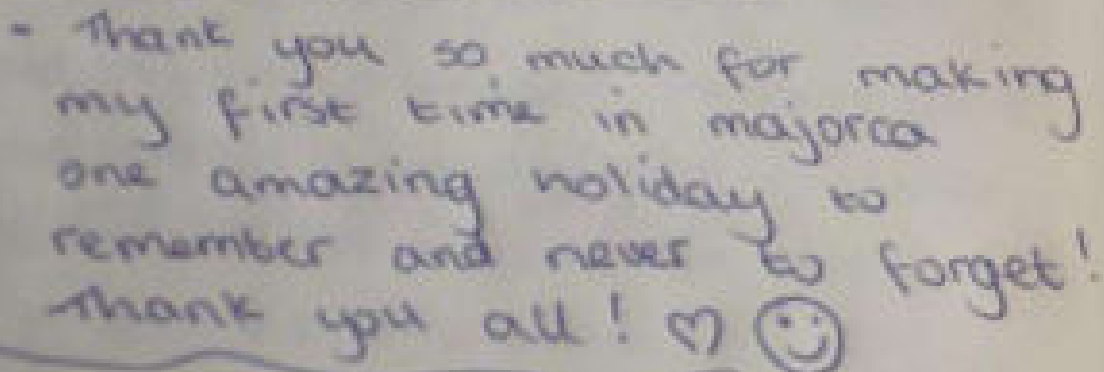 - Thank you so much for making
my first time in majorca
one amazing holiday to
remember and never to forget!
Thank you all! ♡ ☺